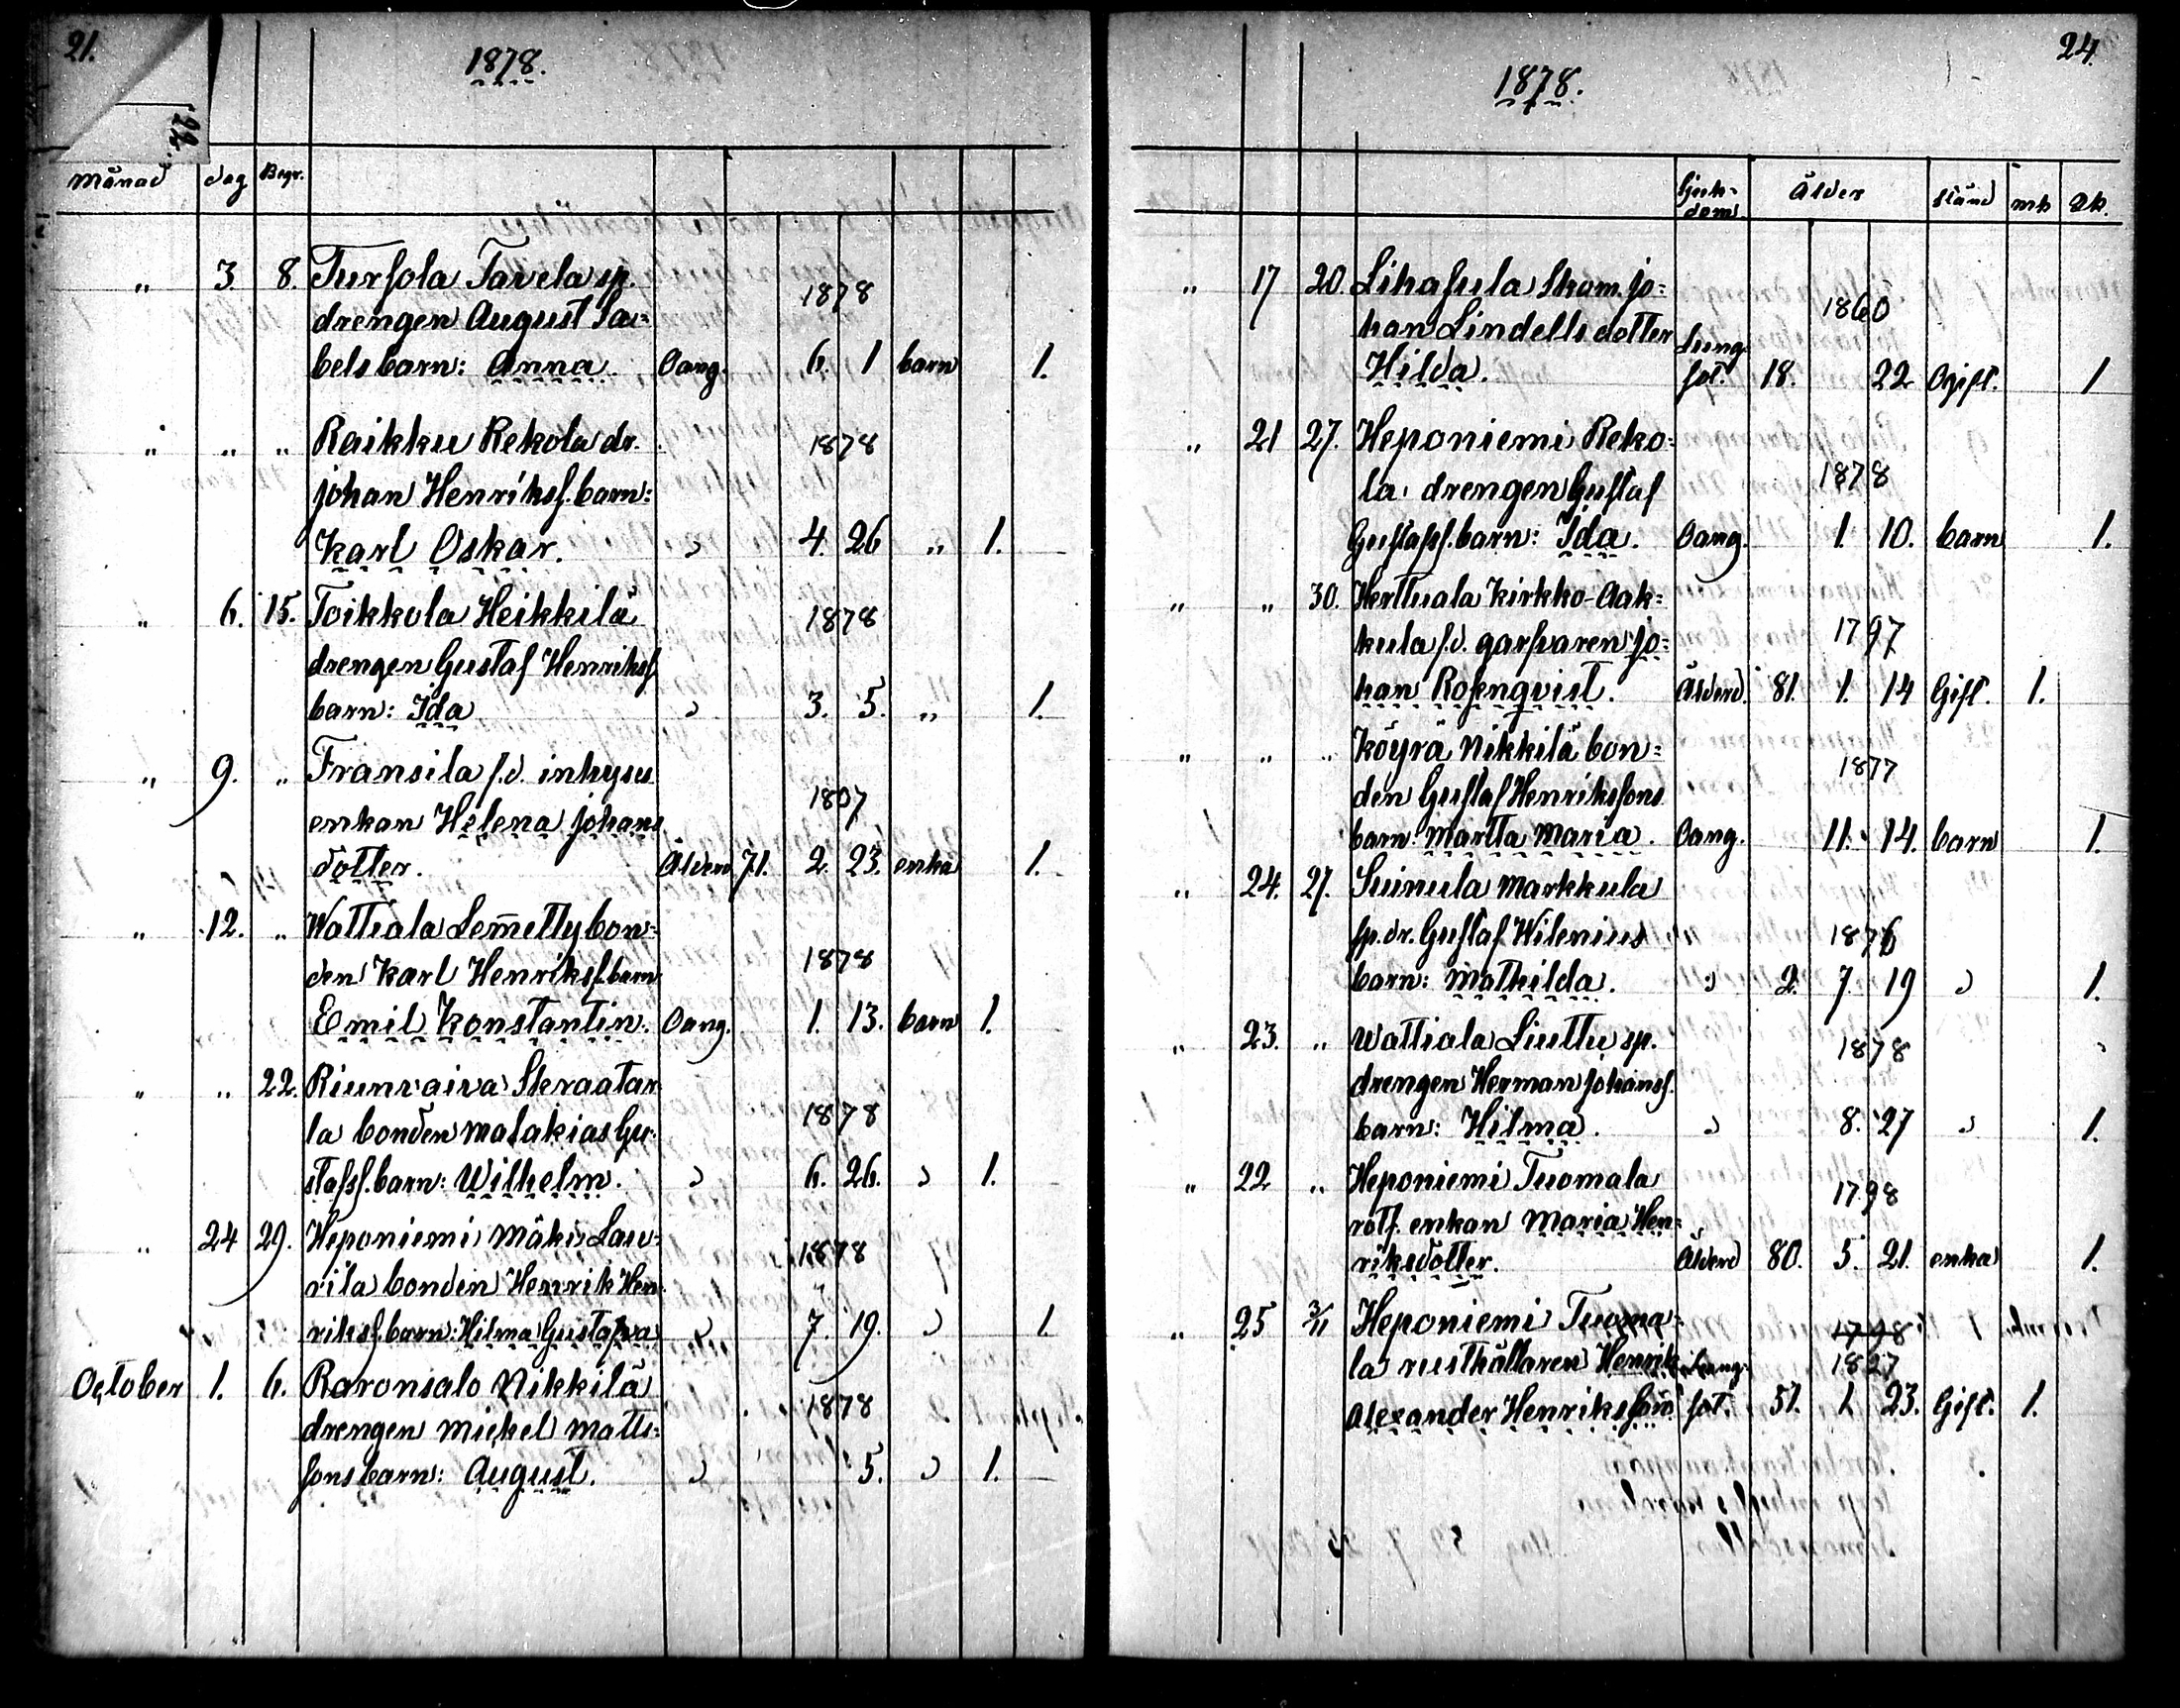 21.
22.
1878.
Månad dag Begr.
„ 3 8. Tursola Tavela sp.
1878
drengen August Isa=
bels barn: Anna. Oang. 6. 1 barn 1.
„ „ „ Raikku Rekola dr.
1878
Johan Henrikss. barn:
Karl Oskar. „ 4. 26 „ 1.
„ 6. 15. Toikkola Heikkilä
1878
drengen Gustaf Henrikss
barn: Ida „ 3. 5. „ 1.
„ 9. „ Fransila f.d. inhyses
1807
enkan Helena Johans
dotter. Ålderd 71. 2. 23. enka 1.
„ 12. „ Wattiala Lem̄etty bon=
1878
den Karl Henrikss. barn
Emil Konstantin. Oang. 1. 13. barn 1.
„ „ 22. Riunvaiva Skraatar
1878
la bonden Malakias Gu-
stafss. barn: Wilhelm. „ 6. 26. „ 1.
„ 24 29. Heponiemi Mäki Lau=
1878
rila bonden Henrik Hen
rikss. barn: Hilma Gustafva „ 7. 19. „ 1.
October 1. 6. Raronsalo Nikkilä
1878
drengen Mickel Matts=
sons barn: August. „ 5. „ 1.
24
1878.
Sjuk-
dom. Ålder stånd mk Qk.
„ 17 20. Lihasula Skom. Jo=
1860
han Lindells dotter
Hilda. Lung
sot. 18. 22 Ogift. 1
„ 21 27. Heponiemi Reko=
1878
la drengen Gustaf
Gustafss. barn: Ida. Oang. 1. 10. barn 1.
„ „ 30. Herttuala Kirkko-Aak=
1797
kula f.d. garfvaren Jo=
han Rosenqvist. Ålderd. 81. 1. 14 Gift. 1.
„ „ „ Köyrä Nikkilä bon=
1877
den Gustaf Henrikssons
barn: Martta Maria. Oang. 11. 14. barn 1.
„ 24. 27. Suinula Markkula
sp. dr. Gustaf Wilenius
1876
barn: Mathilda. „ 2. 7. 19 „ 1.
„ 23. „ Wattiala Liuttu sp.
1878
drengen Herman Johanss.
barn: Hilma. „ 8. 27 „ 1.
„ 22 „ Heponiemi Tuomala
1798
rotf. enkan Maria Hen=
riksdotter. Ålderd 80. 5. 21. enka 1.
„ 25 3/11 Heponiemi Tuoma=
1798
la rusthållaren Henrik Lung-
1827
Alexander Henriksson sot. 51. 1. 23. Gift. 1.